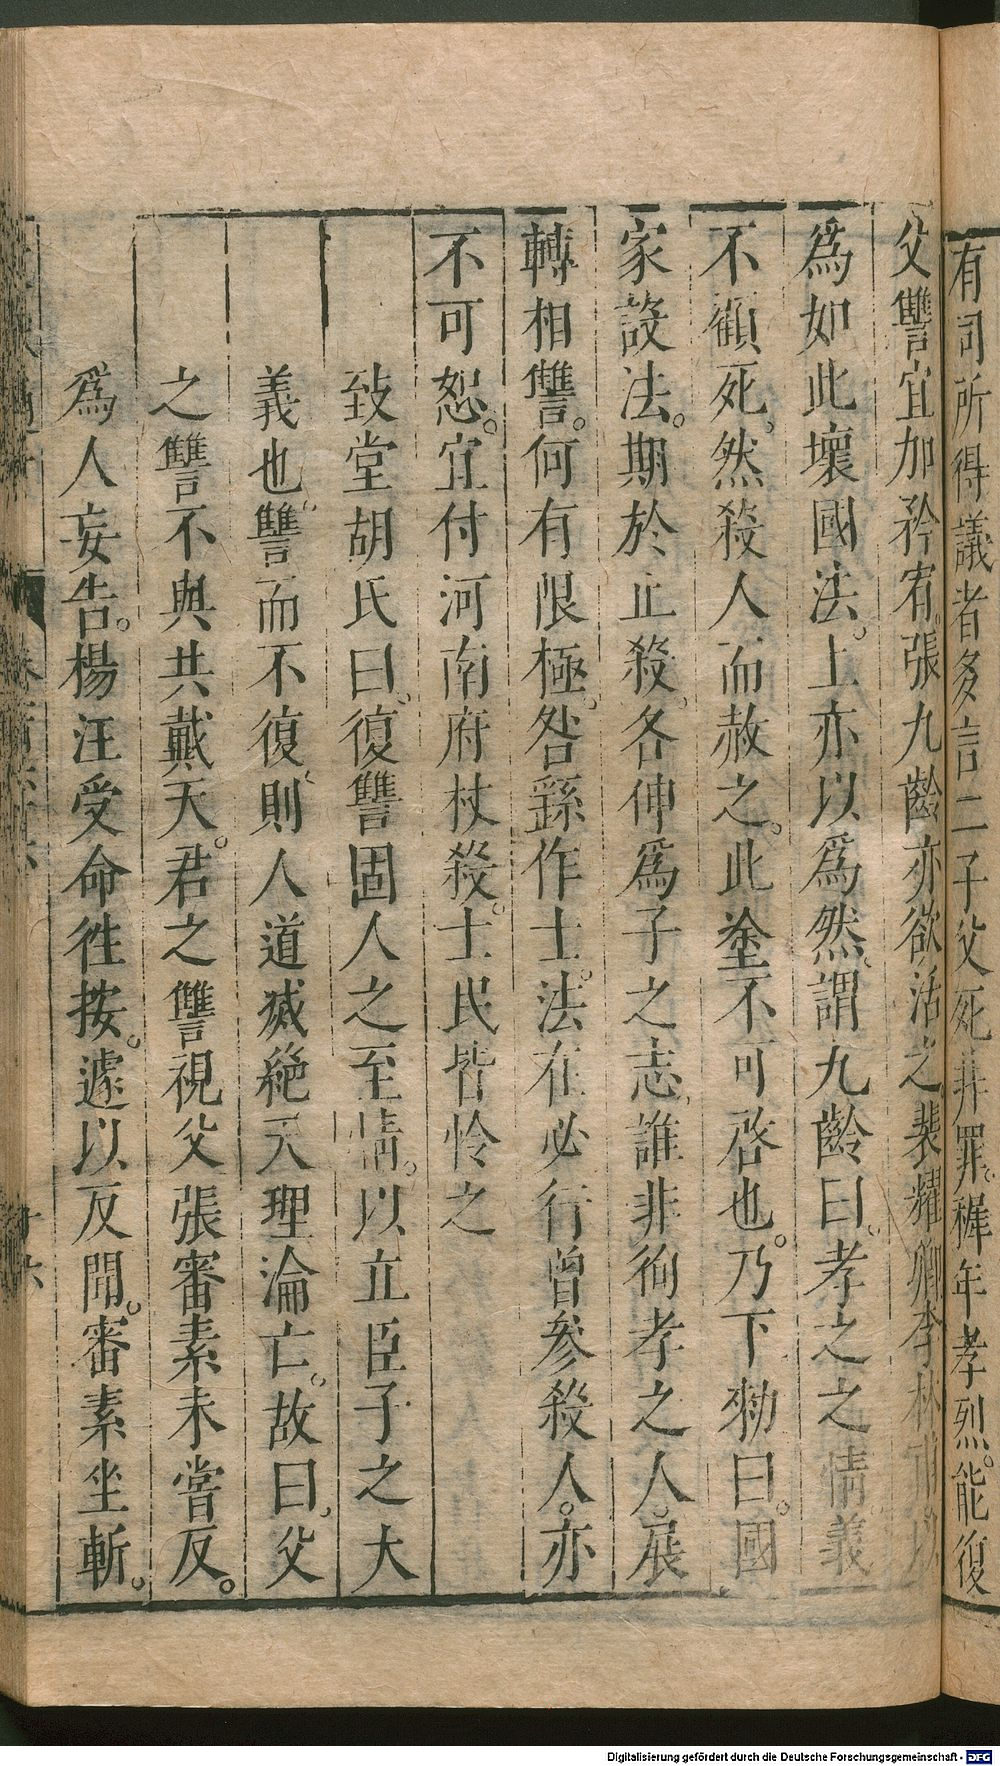 有司所得議者多言二子父死非罪。穉年孝烈。能復
父讐宜加矜宥。張九齡亦欲活之。裴耀卿李林甫以
爲如此壞國法。上亦以爲然。謂九齡曰。孝之之情義
不顧死。然殺人而赦之。此塗不可啓也。乃下勑曰。國
家設法。期於止殺。各伸爲子之志。誰非徇孝之人。展
轉相讐。何有限極。咎繇作士。法在必行。曾參殺人。亦
不可恕。宜付河南府杖殺。士民皆怜之
致堂胡氏曰。復讐固人之至情。以立臣子之大
義也。讐而不復。則人道滅絶。天理淪亡。故曰。父
之讐不與共戴天。君之讐視父。張審素未嘗反。
爲人妄告。楊汪受命徃按。遽以反聞。審素坐斬。
Digitalisierung gefördert durch die Deutsche Forschungsgemeinschaft - DFG